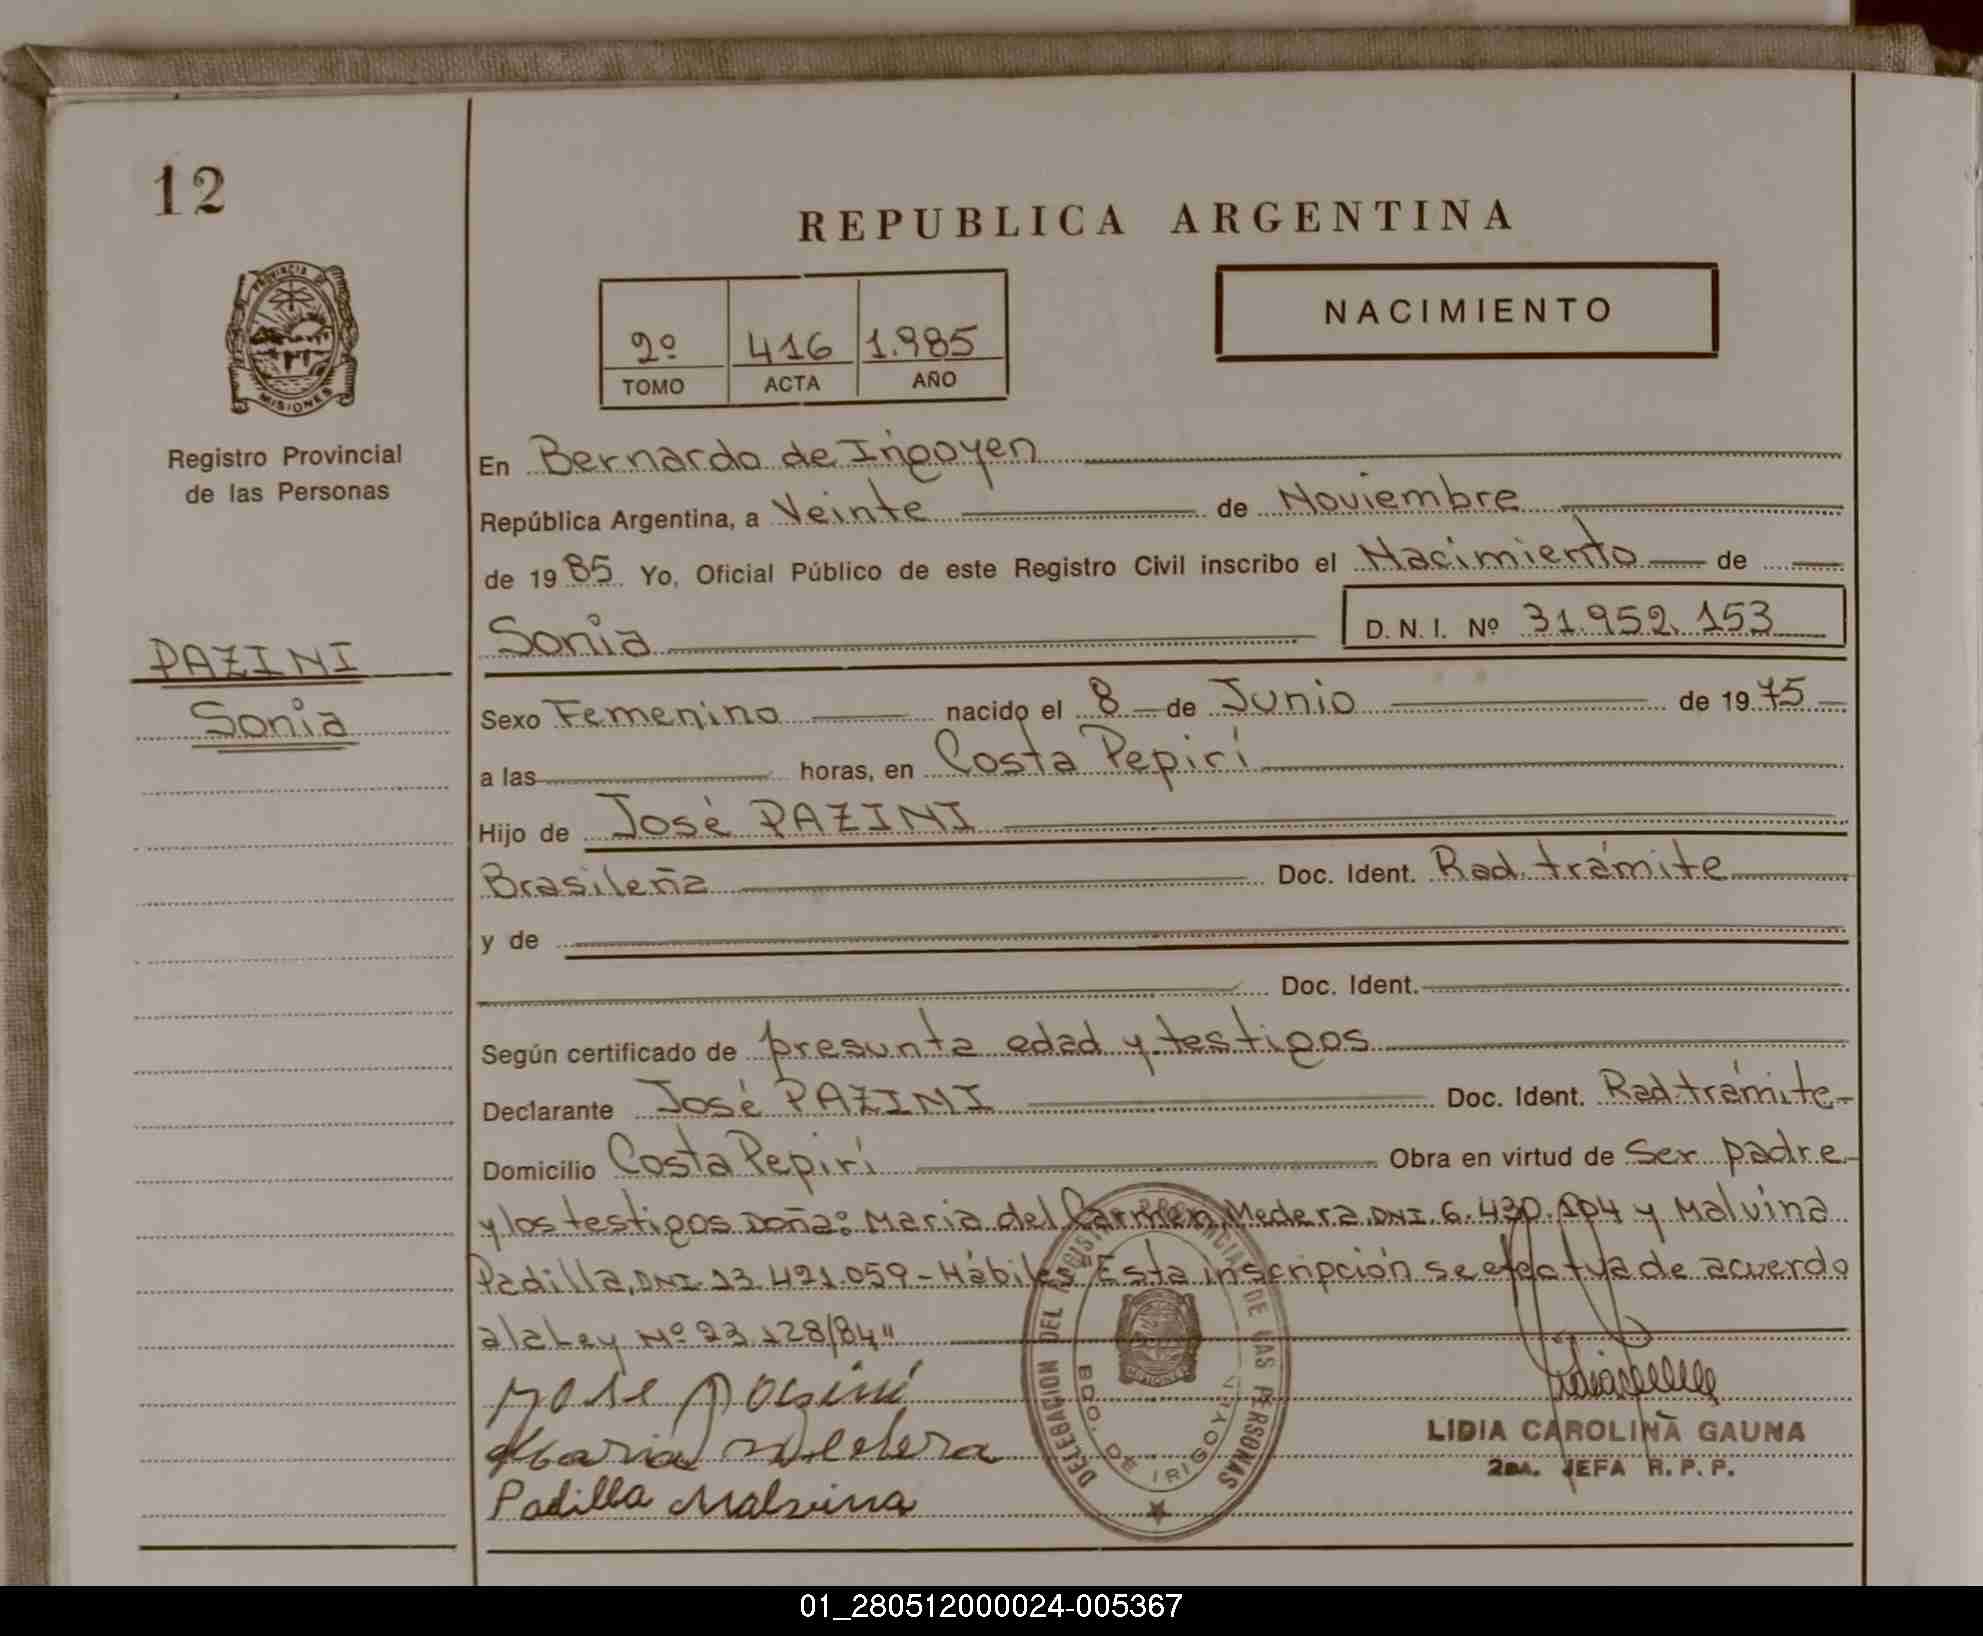 12
REPUBLICA ARGENTINA
PROVINCIA DE
MISIONES
2º 416 1.985
TOMO ACTA AÑO
NACIMIENTO
Registro Provincial
de las Personas
PAZINI
Sonia
En Bernardo de Irigoyen
República Argentina, a Veinte de Noviembre
de 19 85 Yo, Oficial Público de este Registro Civil inscribo el Nacimiento de
Sonia D. N. I. Nº 31.952.153
Sexo Femenino nacido el 8 de Junio de 19 75
a las horas, en Costa Pepirí
Hijo de José PAZINI
Brasileña Doc. Ident. Rad. trámite
y de
Doc. Ident.
Según certificado de presunta edad y testigos
Declarante José PAZINI Doc. Ident. Rad. trámite
Domicilio Costa Pepirí Obra en virtud de Ser padre
y los testigos Doña: Maria del Carmen Medera, DNI. 6.430. y Malvina
Padilla, DNI. 13.421.059 - Hábiles "Esta inscripción se efectua de acuerdo
a la Ley Nº 23.128/84"
Jose Pasini
Maria Medera
Padilla Malvina
DELEGACION DEL REGISTRO PROVINCIAL DE LAS PERSONAS
BDO. DE IRIGOYEN
LIDIA CAROLINA GAUNA
2DA. JEFA R. P. P.
01_280512000024-005367